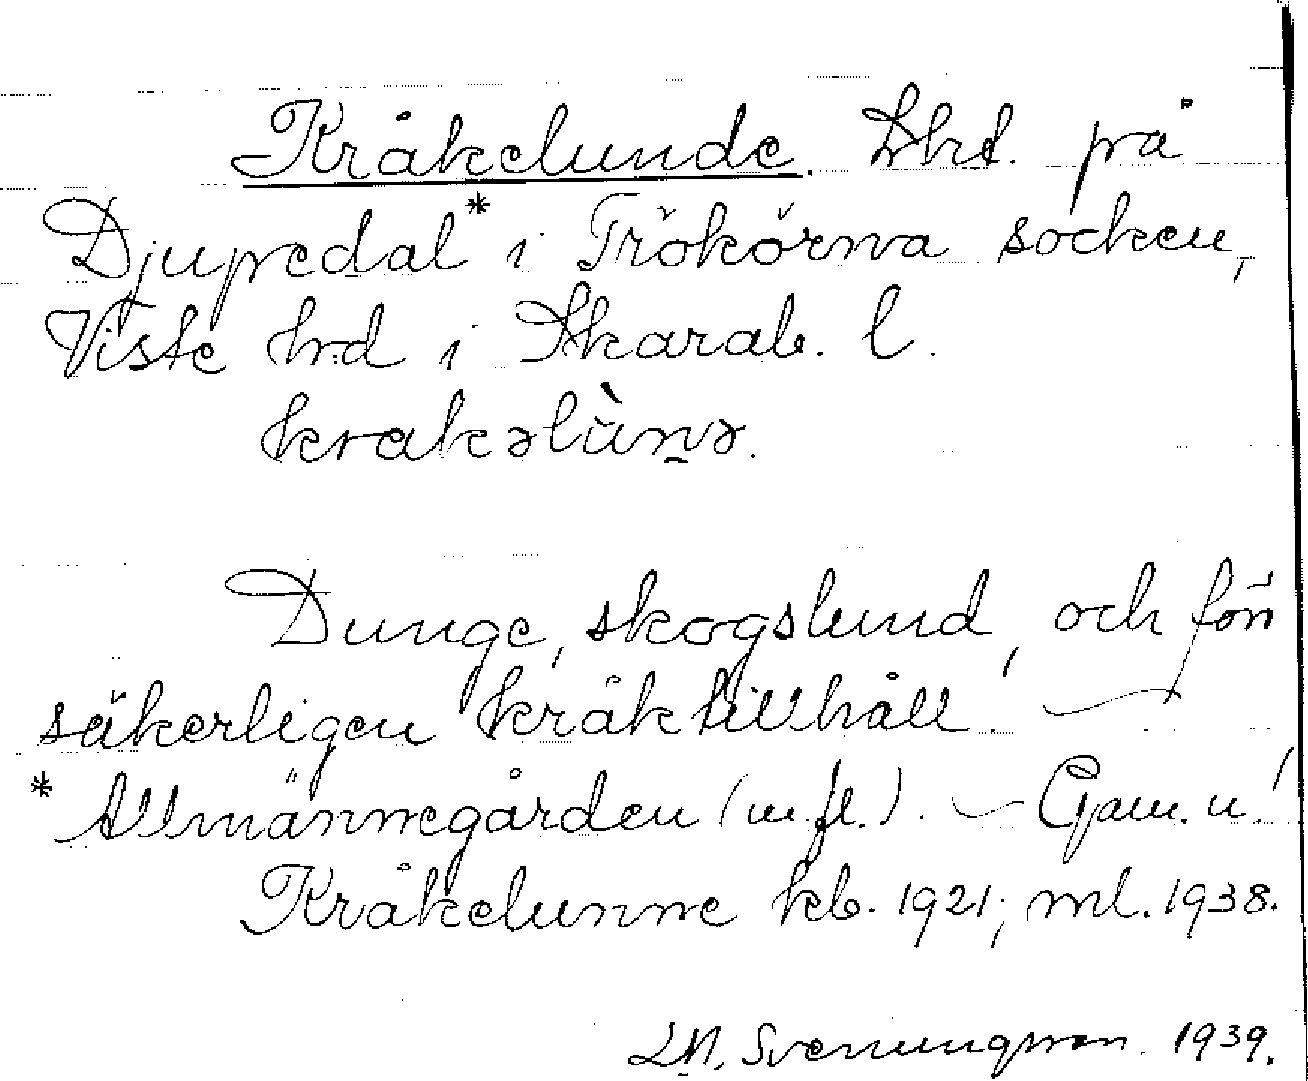 Kråkelunde. Lhd. på
Djupedal* i Trökörna socken,
Viste hrd i Skarab. l.
krakəlùnə.
Dunge, skogslund, och förr
säkerligen kråktillhåll. —
* Allmännegården (m. fl.). — Gam. n.!
Kråkelunne kb. 1921; ml. 1938.
Svenungsson. 1939.